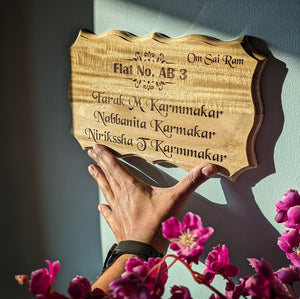 Om Sai Ram
Flat No. AB 3
Tarak M Karmmakar
Nabbanita Karmakar
Nirikssha T Karmmakar